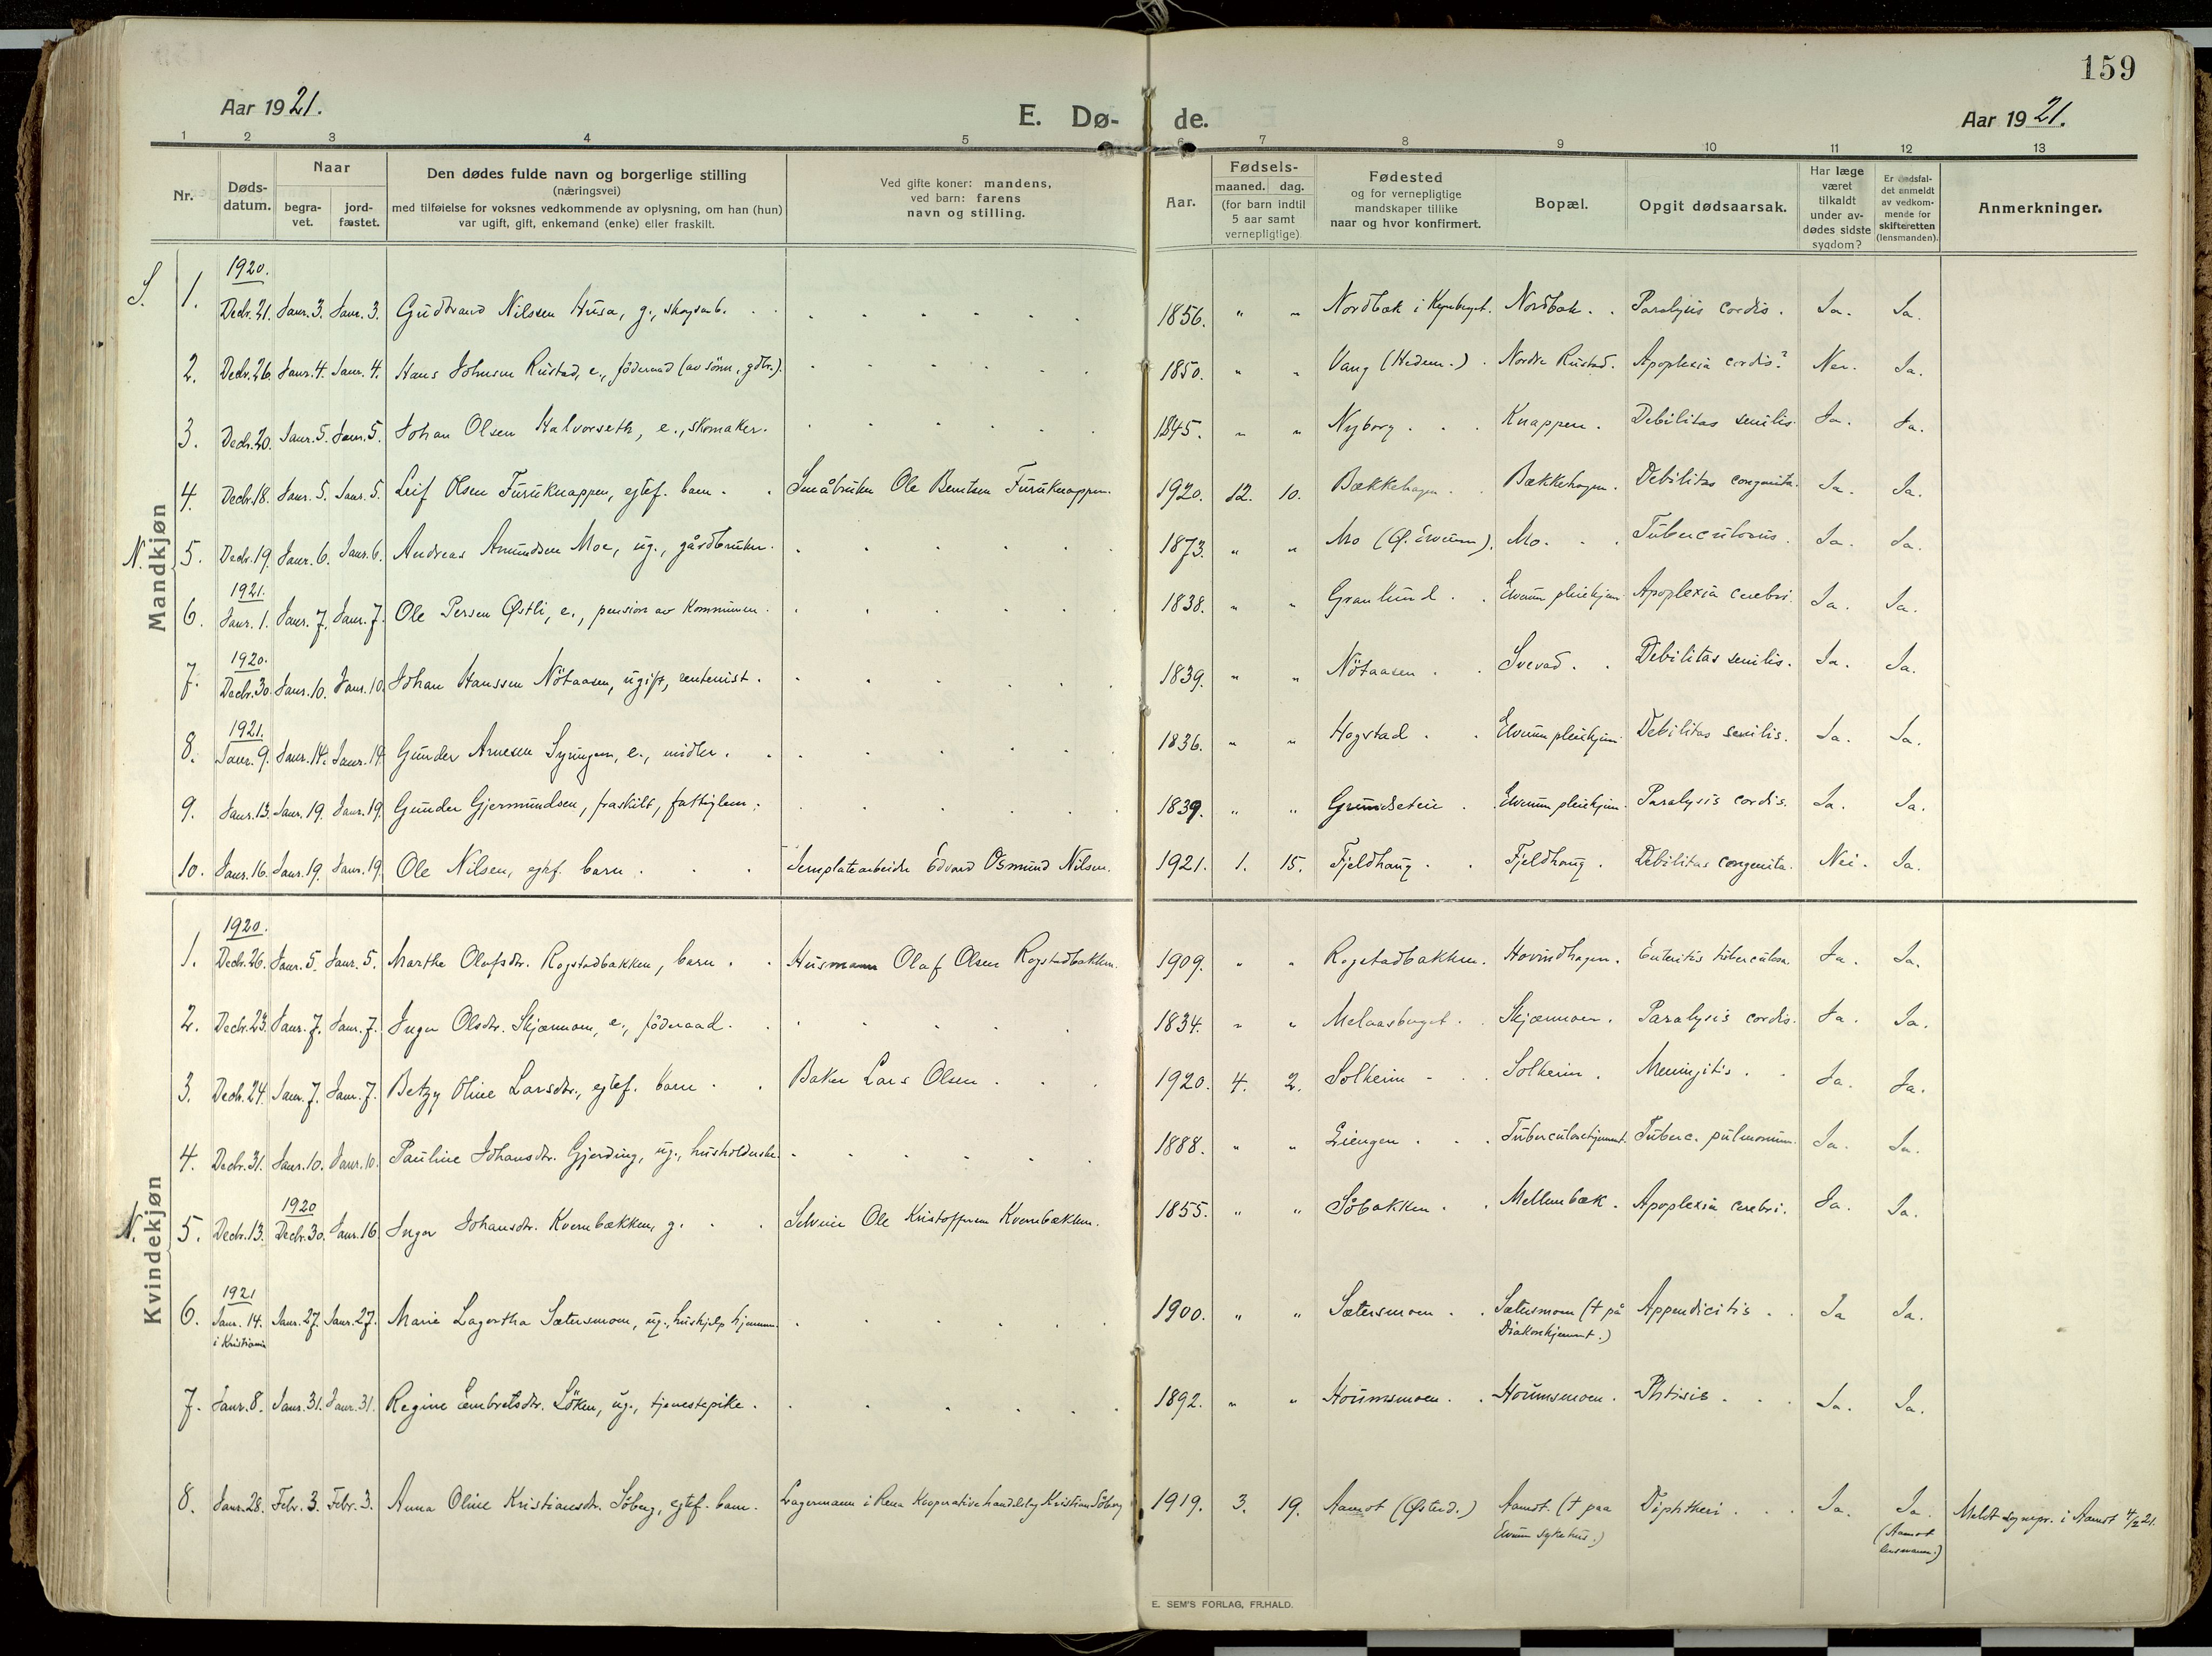 159
Aar 1921.
E. Dø- de.
Aar 1921.
1 2 3 4 5 6 7 8 9 10 11 12 13
Nr.
Døds-datum.
Naar
begra-vet.
jord-fæstet.
Den dødes fulde navn og borgerlige stilling
(næringsvei)
med tilføielse for voksnes vedkommende av oplysning, om han (hun)
var ugift, gift, enkemand (enke) eller fraskilt.
Ved gifte koner: mandens,
ved barn: farens
navn og stilling.
Aar.
Fødsels-
maaned. dag.
(for barn indtil
5 aar samt
vernepligtige)
Fødested
og for vernepligtige
mandskaper tillike
naar og hvor konfirmert.
Bopæl.
Opgit dødsaarsak.
Har læge
været
tilkaldt
under av-
dødes sidste
sygdom?
Er dødsfal-
det anmeldt
av vedkom-
mende for
skifteretten
(lensmanden).
Anmerkninger.
Mandkjøn
1920.
S. 1. Decbr. 21. Janr. 3. Janr. 3. Gudbrand Nilssen Husa, g., skogsarb. 1856. " " Nordbæk i Kynberget. Nordbæk. Paralysis cordis. Ja. Ja.
2. Decbr. 26. Janr. 4. Janr. 4. Hans Johnsen Rustad, e., föderaad (av sönn, gdbr.). 1850. " " Vang (Hedem.). Nordre Rustad. Apoplexia cordis? Nei. Ja.
3. Decbr. 20. Janr. 5. Janr. 5. Johan Olsen Halvorseth, e., skomaker. 1845. " " Nyborg. Knappen. Debilitas senilis. Ja. Ja.
4. Decbr. 18. Janr. 5. Janr. 5. Leif Olsen Furuknappen, egtef. barn. Småbruker Ole Berntsen Furuknappen. 1920. 12. 10. Bækkehagen. Bækkehagen. Debilitas congenita. Ja. Ja.
N. 5. Decbr. 19. Janr. 6. Janr. 6. Andreas Amundsen Moe, ug., gårdbruker. 1873. " " Mo (Ø. Elverum). Mo. Tuberculosis. Ja. Ja.
1921.
6. Janr. 1. Janr. 7. Janr. 7. Ole Persen Østli, e., pension av Kommunen. 1838. " " Granlund. Elverum pleiehjem. Apoplexia cerebri. Ja. Ja.
1920.
7. Decbr. 30. Janr. 10. Janr. 10. Johan Hanssen Nötaasen, ugift, rentenist. 1839. " " Nötaasen. Svevad. Debilitas senilis. Ja. Ja.
1921.
8. Janr. 9. Janr. 14. Janr. 14. Gunder Arnesen Syringen, e., midler. 1836. " " Hagstad. Elverum pleiehjem. Debilitas senilis. Ja. Ja.
9. Janr. 13. Janr. 19. Janr. 19. Gunder Gjermundsen, fraskilt, fattiglem. 1839. " " Grundseteie. Elverum pleiehjem. Paralysis cordis. Ja. Ja.
10. Janr. 16. Janr. 19. Janr. 19. Ole Nilsen, egtef. barn. Edvard Osmund Nilsen. 1921. 1. 15. Fjeldhaug. Fjeldhaug. Debilitas congenita. Nei. Ja.
Kvindekjøn
1920.
1. Decbr. 26. Janr. 5. Janr. 5. Marthe Olafsdtr. Rogstadbakken, barn. Husmann Olaf Olsen Rogstadbakken. 1909. " " Rogstadbakken. Hovindhagen. Enteritis tuberculosa. Ja. Ja.
2. Decbr. 23. Janr. 7. Janr. 7. Inger Olsdtr. Skjærmoen, e., föderaad. 1834. " " Melaasberget. Skjærmoen. Paralysis cordis. Ja. Ja.
3. Decbr. 24. Janr. 7. Janr. 7. Betzy Oline Larsdtr., egtef. barn. Baker Lars Olsen. 1920. 4. 2. Solheim. Solheim. Meningitis. Ja. Ja.
4. Decbr. 31. Janr. 10. Janr. 10. Pauline Johansdtr. Gjerding, ug., husholderske. 1888. " " Eiengen. Tuberculosehjemmet. Tuberc. pulmonum. Ja. Ja.
1920
N. 5. Decbr. 13. Decbr. 30. Janr. 16. Inger Johansdtr. Kvernbækken, g. Selveier Ole Kristoffersen Kvernbækken. 1855. " " Söbakken. Mellembæk. Apoplexia cerebri. Ja. Ja.
1921
6. Janr. 14. Janr. 27. Janr. 27. Marie Lagertha Sætersmoen, ug., hushjelp hjemme. 1900. " " Sætersmoen. Sætersmoen († på Appendicitis. Ja Ja.
i Kristiania Diakonhjemmet.)
7. Janr. 8. Janr. 31. Janr. 31. Regine Embretsdtr. Löken, ug., tjenestepike. 1892. " " Houmsmoen. Houmsmoen. Phtisis. Ja. Ja.
8. Janr. 28. Febr. 3. Febr. 3. Anna Oline Kristiansdtr. Söberg, egtef. barn. Lagermann i Rena Kooperative handelslag Kristian Söberg 1919. 3. 19. Aamot (Østerd.) Aamot. († paa Diphtheri. Ja. Ja. Meldt sognepr. i Aamot 4/2 21.
Elverum sykehus.) (Aamot
lensmann.)
E. SEM'S FORLAG, FR.HALD.